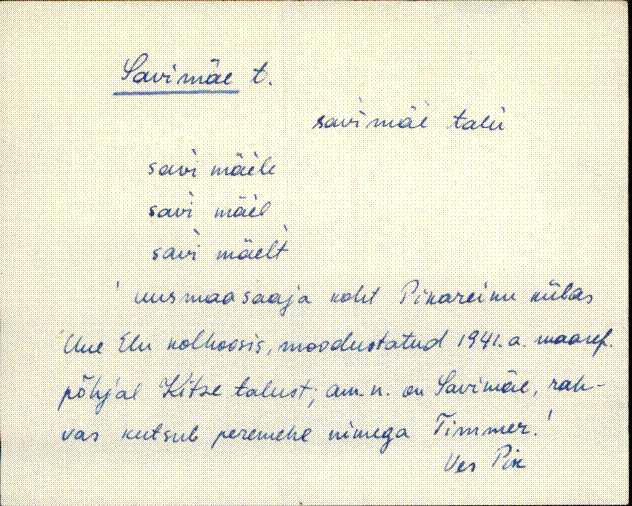 Savimäe t.
savi mäe talu
savi mäele
savi mäel
savi mäelt
' uusmaasaaja koht Pikareinu külas
Uue Elu kolhoosis, moodustatud 1941. a. maaref.
põhjal Kitse talust; am. n. on Savimäe, rah-
vas kutsub peremehe nimega Timmer.'
Ves Pin